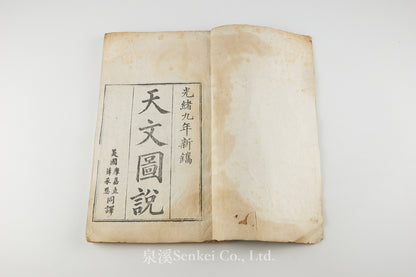 光緒九年新鐫
天文圖說
美國摩嘉立
薛承恩同譯
泉溪Senkei Co., Ltd.